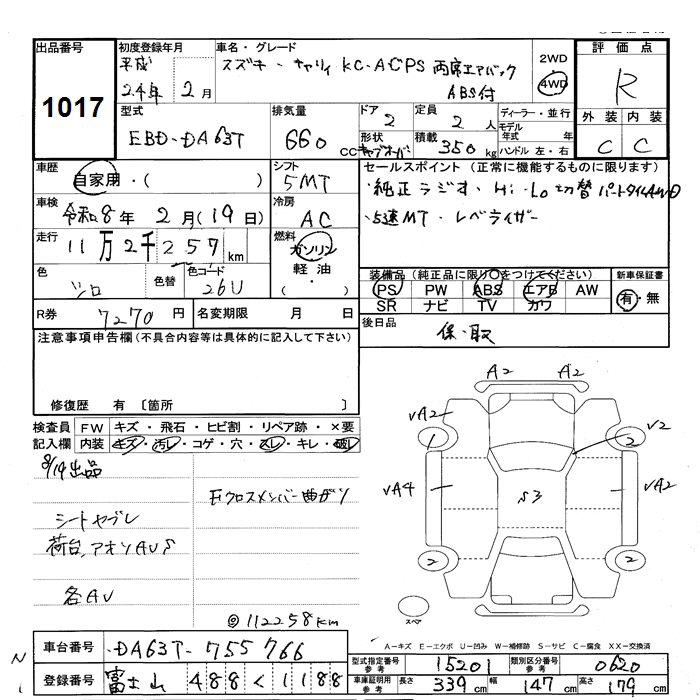 出品番号
1017
初度登録年月
平成
24年 2月
車名・グレード
スズキ・キャリィ KC・ACPS 両席エアバック
ABS付
2WD
4WD
評価点
R
外装 内装
C C
型式
EBD-DA63T
排気量
660
CC
ドア
2
形状
キャブオーバ
定員
2 人
積載
350 kg
ディーラー・並行
モデル
年式 年
ハンドル 左・右
車歴
自家用・( )
車検
令和8年 2月(19日)
走行
11万2千257km
色
シロ
色替
色コード
26U
シフト
5MT
冷房
AC
燃料
ガソリン
軽油
( ・ )
セールスポイント (正常に機能するものに限ります)
・純正ラジオ・Hi-Lo切替 パートタイム4WD
・5速MT・レベライザー
装備品(純正品に限り○をつけてください)
PS PW ABS エアB AW
SR ナビ TV カワ
新車保証書
有・無
R券
7270円
名変期限 月 日
後日品
保・取
注意事項申告欄(不具合内容等は具体的に記入して下さい)
修復歴 有 〔箇所 〕
検査員
記入欄
FW キズ・飛石・ヒビ割・リペア跡・×要
内装 キズ・汚レ・コゲ・穴・スレ・キレ・破レ
8/19出品
Fクロスメンバー曲がり
シートヤブレ
荷台、アオリAUS
各AU
@112258km
A2 A2
√A2 √2
√A4 S3 √A2
スペア
A-キズ E-エクボ U-凹み W-補修跡 S-サビ C-腐食 XX-交換済
車台番号
DA63T-755766
登録番号
富士山 488く1188
型式指定番号
参考
15201
類別区分番号
参考
0620
車庫証明用
参考
長さ 339cm 幅 147cm 高さ 179cm